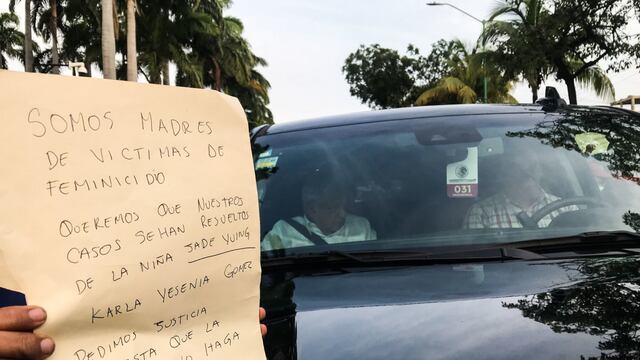 SOMOS MADRES
DE VICTIMAS DE
FEMINICIDO
QUEREMOS QUE NUESTROS
CASOS SEHAN RESUELTOS
DE LA NIÑA JADE YUING
KARLA YESENIA GOMEZ
PEDIMOS JUSTICIA
QUE LA
HAGA
031